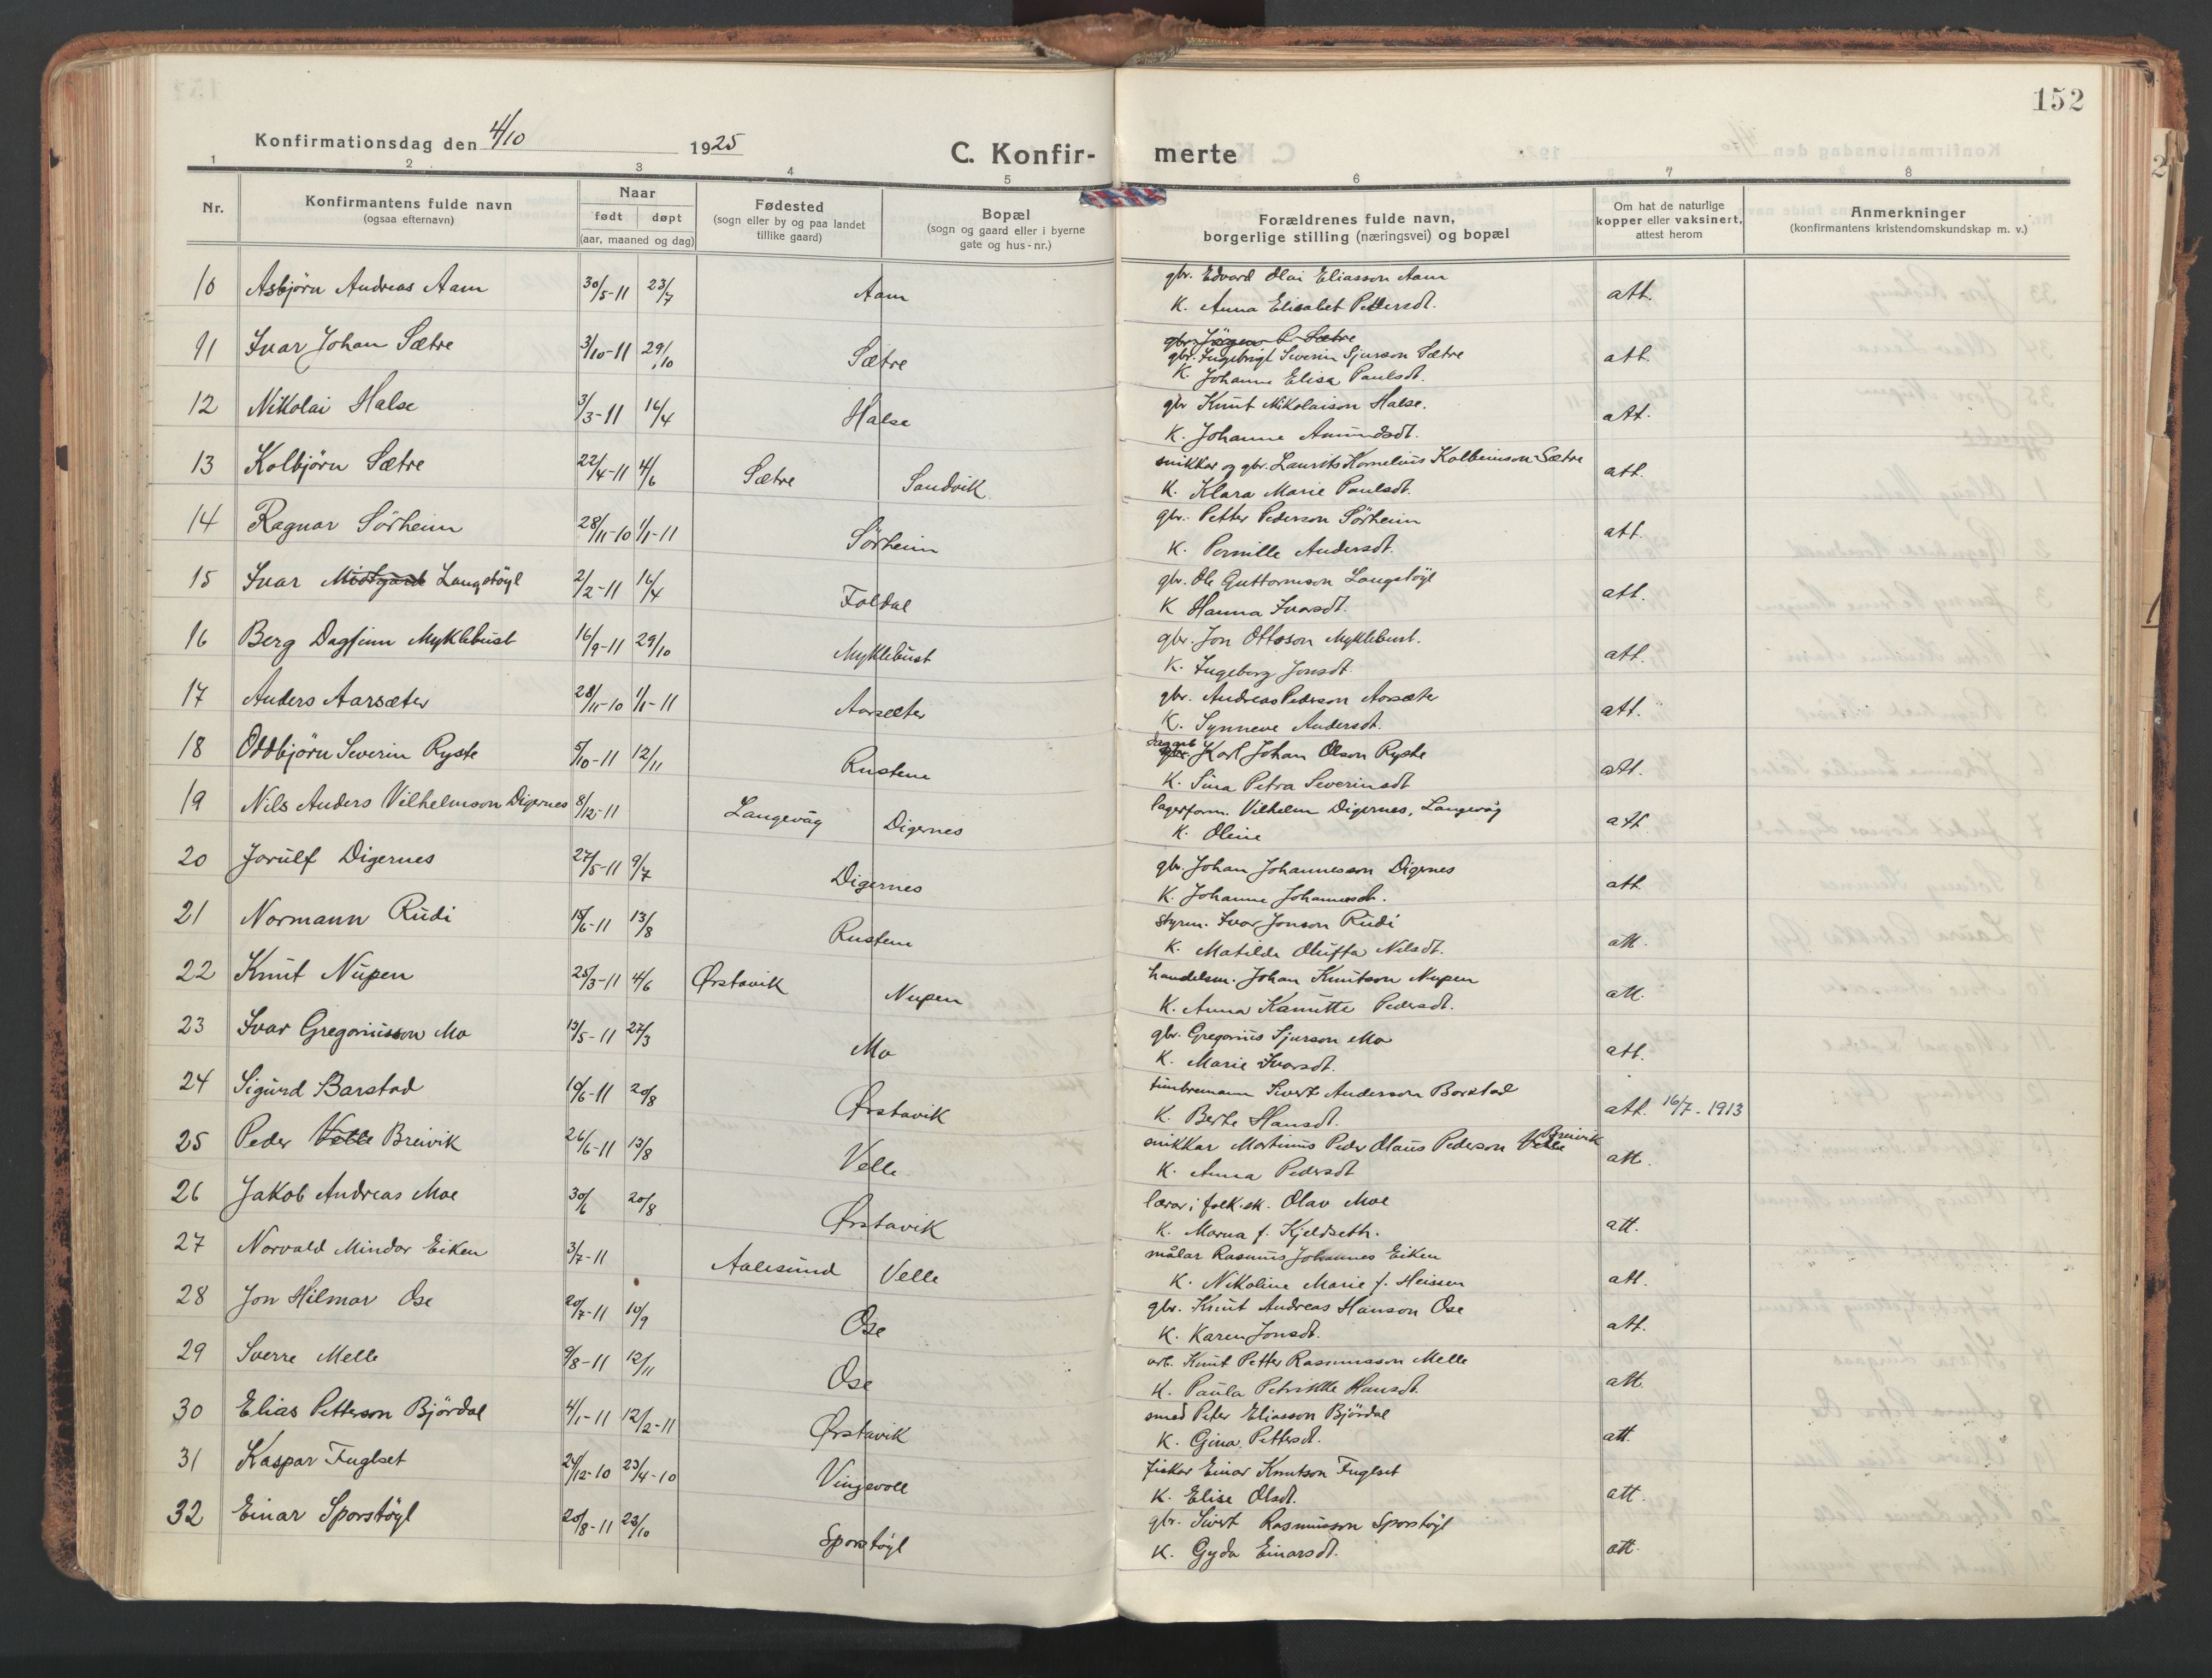 152
Konfirmationsdag den 4/10 1925
C. Konfir- merte
1 2 3 4 5 6 7 8
Nr.
Konfirmantens fulde navn
(ogsaa efternavn)
Naar
født døpt
(aar, maaned og dag)
Fødested
(sogn eller by og paa landet
tillike gaard)
Bopæl
(sogn og gaard eller i byerne
gate og hus-nr.)
Forældrenes fulde navn,
borgerlige stilling (næringsvei) og bopæl
Om hat de naturlige
kopper eller vaksinert,
attest herom
Anmerkninger
(konfirmantens kristendomskundskap m. v.)
10 Asbjörn Andreas Aam 30/5-11 23/7 Aam gbr. Edvard Olai Eliasson Aam att.
K. Anna Elisabet Pettersdt.
11 Ivar Johan Sætre 3/10-11 29/10 Sætre gbr. Jörgen P. Sætre
gbr. Ingebrigt Severin Sjurson Sætre att.
K. Johanne Elisa Paulsdt.
12 Nikolai Halse 3/3-11 16/4 Halse gbr Knut Nikolaison Halse. att.
K. Johanne Amundsdt.
13 Kolbjörn Sætre 22/4-11 4/6 Sætre Sandvik snikkar og gbr. Laurits Kornelius Kolbeinson Sætre att.
K. Klara Marie Paulsdt.
14 Ragnar Sörheim 28/11-10 1/1-11 Sörheim gbr. Petter Pederson Sörheim att.
K. Pernille Andersdt.
15 Ivar Midtgard Langstöyl 2/2-11 16/4 Foldal gbr. Ole Guttormson Langstöyl att.
K Hanna Ivarsdt.
16 Berg Dagfinn Myklebust 16/9-11 29/10 Myklebust gbr. Jon Ottoson Myklebust. att.
K. Ingeborg Jonsdt.
17 Anders Aarsæter 28/11-10 1/1-11 Aarsæter gbr. Andreas Pederson Aarsæter att.
K. Synneve Andersdt.
18 Oddbjörn Severin Ryste 5/10-11 12/11 Rustene gbr. Karl Johan Olson Ryste att.
K. Sina Petra Severinsdt
19 Nils Anders Vilhelmson Digernes 8/12-11 Langevåg Digernes lagerform. Vilhelm Digernes, Langevåg att
K. Oline
20 Jorulf Digernes 27/5-11 9/7 Digernes gbr. Johan Johannesson Digernes att
K. Johanne Johannesdt.
21 Normann Rudi 18/6-11 13/8 Rustene styrm. Ivar Jonson Rudi att.
K. Matilde Oluffa Nilsdt.
22 Knut Nupen 25/3-11 4/6 Ørstavik Nupen handelsm. Johan Knutson Nupen att.
K. Anna Kanutte Pedersdt.
23 Ivar Gregoriusson Mo 13/5-11 27/3 Mo gbr. Gregorius Sjurson Mo att.
K. Marie Ivarsdt.
24 Sigurd Barstad 10/6-11 20/8 Ørstavik timbremann Sivert Anderson Barstad att. 16/7-1913
K. Berte Hansdt.
25 Peder Velle Breivik 26/6-11 13/8 Velle snikkar Martinus Peder Olaus Pederson Velle Breivik att.
K. Anna Pedersdt
26 Jakob Andreas Moe 30/6 20/8 Ørstavik lærar i folk.sk. Olav Moe att.
K. Marna f. Kjeldseth.
27 Norvald Mindor Eiken 3/7-11 Aalesund Velle målar Rasmus Johannes Eiken att.
K. Nikoline Marie f. Heissen
28 Jon Hilmar Ose 20/7-11 10/9 Ose gbr. Knut Andreas Hanson Ose att.
K. Karen Jonsdt.
29 Sverre Melle 9/8-11 12/11 Ose arb. Knut Petter Rasmusson Melle att.
K. Paula Petrikke Hansdt.
30 Elias Petterson Björdal 4/1-11 12/2-11 Ørstavik smed Peter Eliasson Björdal att.
K. Gina Pettersdt.
31 Kaspar Fuglset 24/12-10 23/4-10 Vingevoll fiskar Einar Knutson Fuglset att.
K. Elise Olsdt.
32 Einar Sporstöyl 20/8-11 23/10 Sporstöyl gbr. Sivert Rasmusson Sporstöyl att.
K. Gyda Einarsdt.